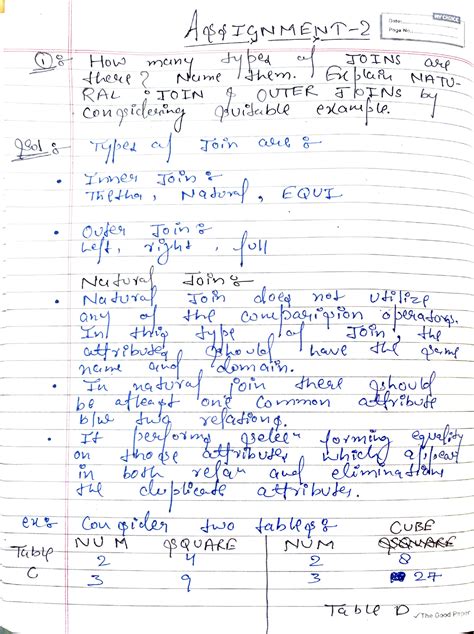 ASSIGNMENT-2
MYCHOICE
Date:
Page No.
①:- How many types of JOINS are
there? Name them. Explain NATU-
RAL JOIN & OUTER JOINS by
considering suitable example.
Sol:- Types of Join are:
• Inner Join:
Thetha, Natural, EQUI
• Outer Join:
Left, right, full
Natural Join:
• Natural Join does not utilize
any of the comparision operators.
In this type of Join, the
attributes should have the same
name and domain.
• In natural join there should
be atleast one common attribute
b/w two relations.
• It performs forming equality
on those attributes which appear
in both and eliminations
the duplicate attributes.
ex: Consider two tables:
CUBE
Table NUM SQUARE NUM SQUARE
C 2 4 2 8
3 9 3 27
Table D
The Good Paper